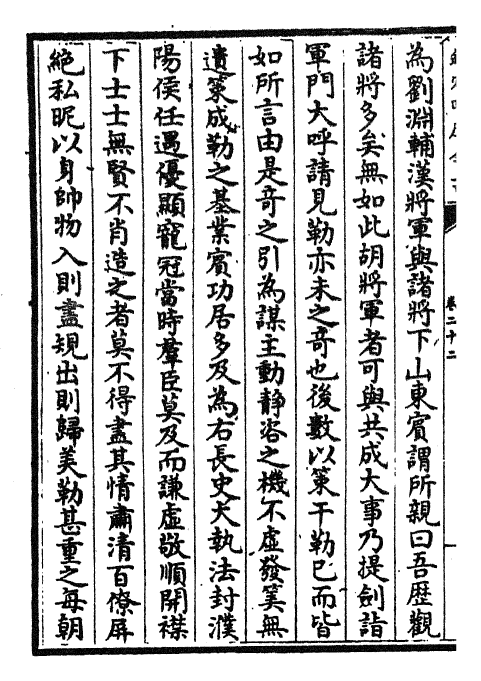 卷二十二
為劉淵輔漢將軍與諸將下山東賓謂所親曰吾歴觀
諸將多矣無如此胡將軍者可與共成大事乃提劍詣
軍門大呼請見勒亦未之竒也後數以策干勒已而皆
如所言由是竒之引為謀主動静咨之機不虛發算無
遺策成勒之基業賓功居多及為右長史大執法封濮
陽侯任遇優顯寵冠當時羣臣莫及而謙虛敬順開襟
下士士無賢不肖造之者莫不得盡其情肅清百僚屏
絕私昵以身帥物入則盡規出則歸美勒甚重之每朝